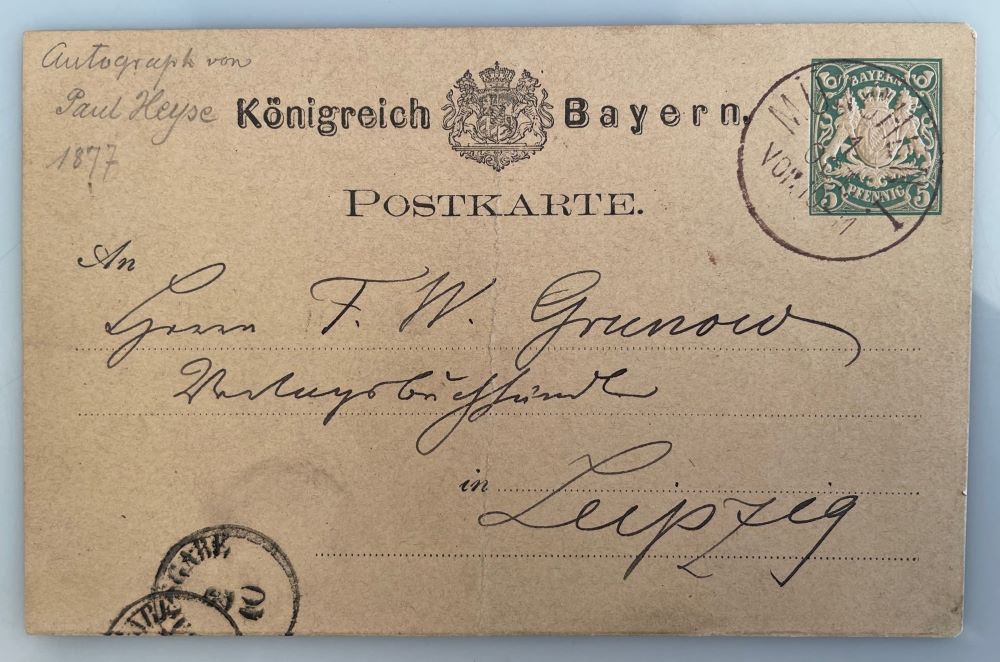 Autograph von
Paul Heyse
1877
Königreich Bayern.
POSTKARTE.
BAYERN
5 PFENNIG 5
VORM
1
An
Herrn F. W. Grunow
Verlagsbuchhändler
in Leipzig
10